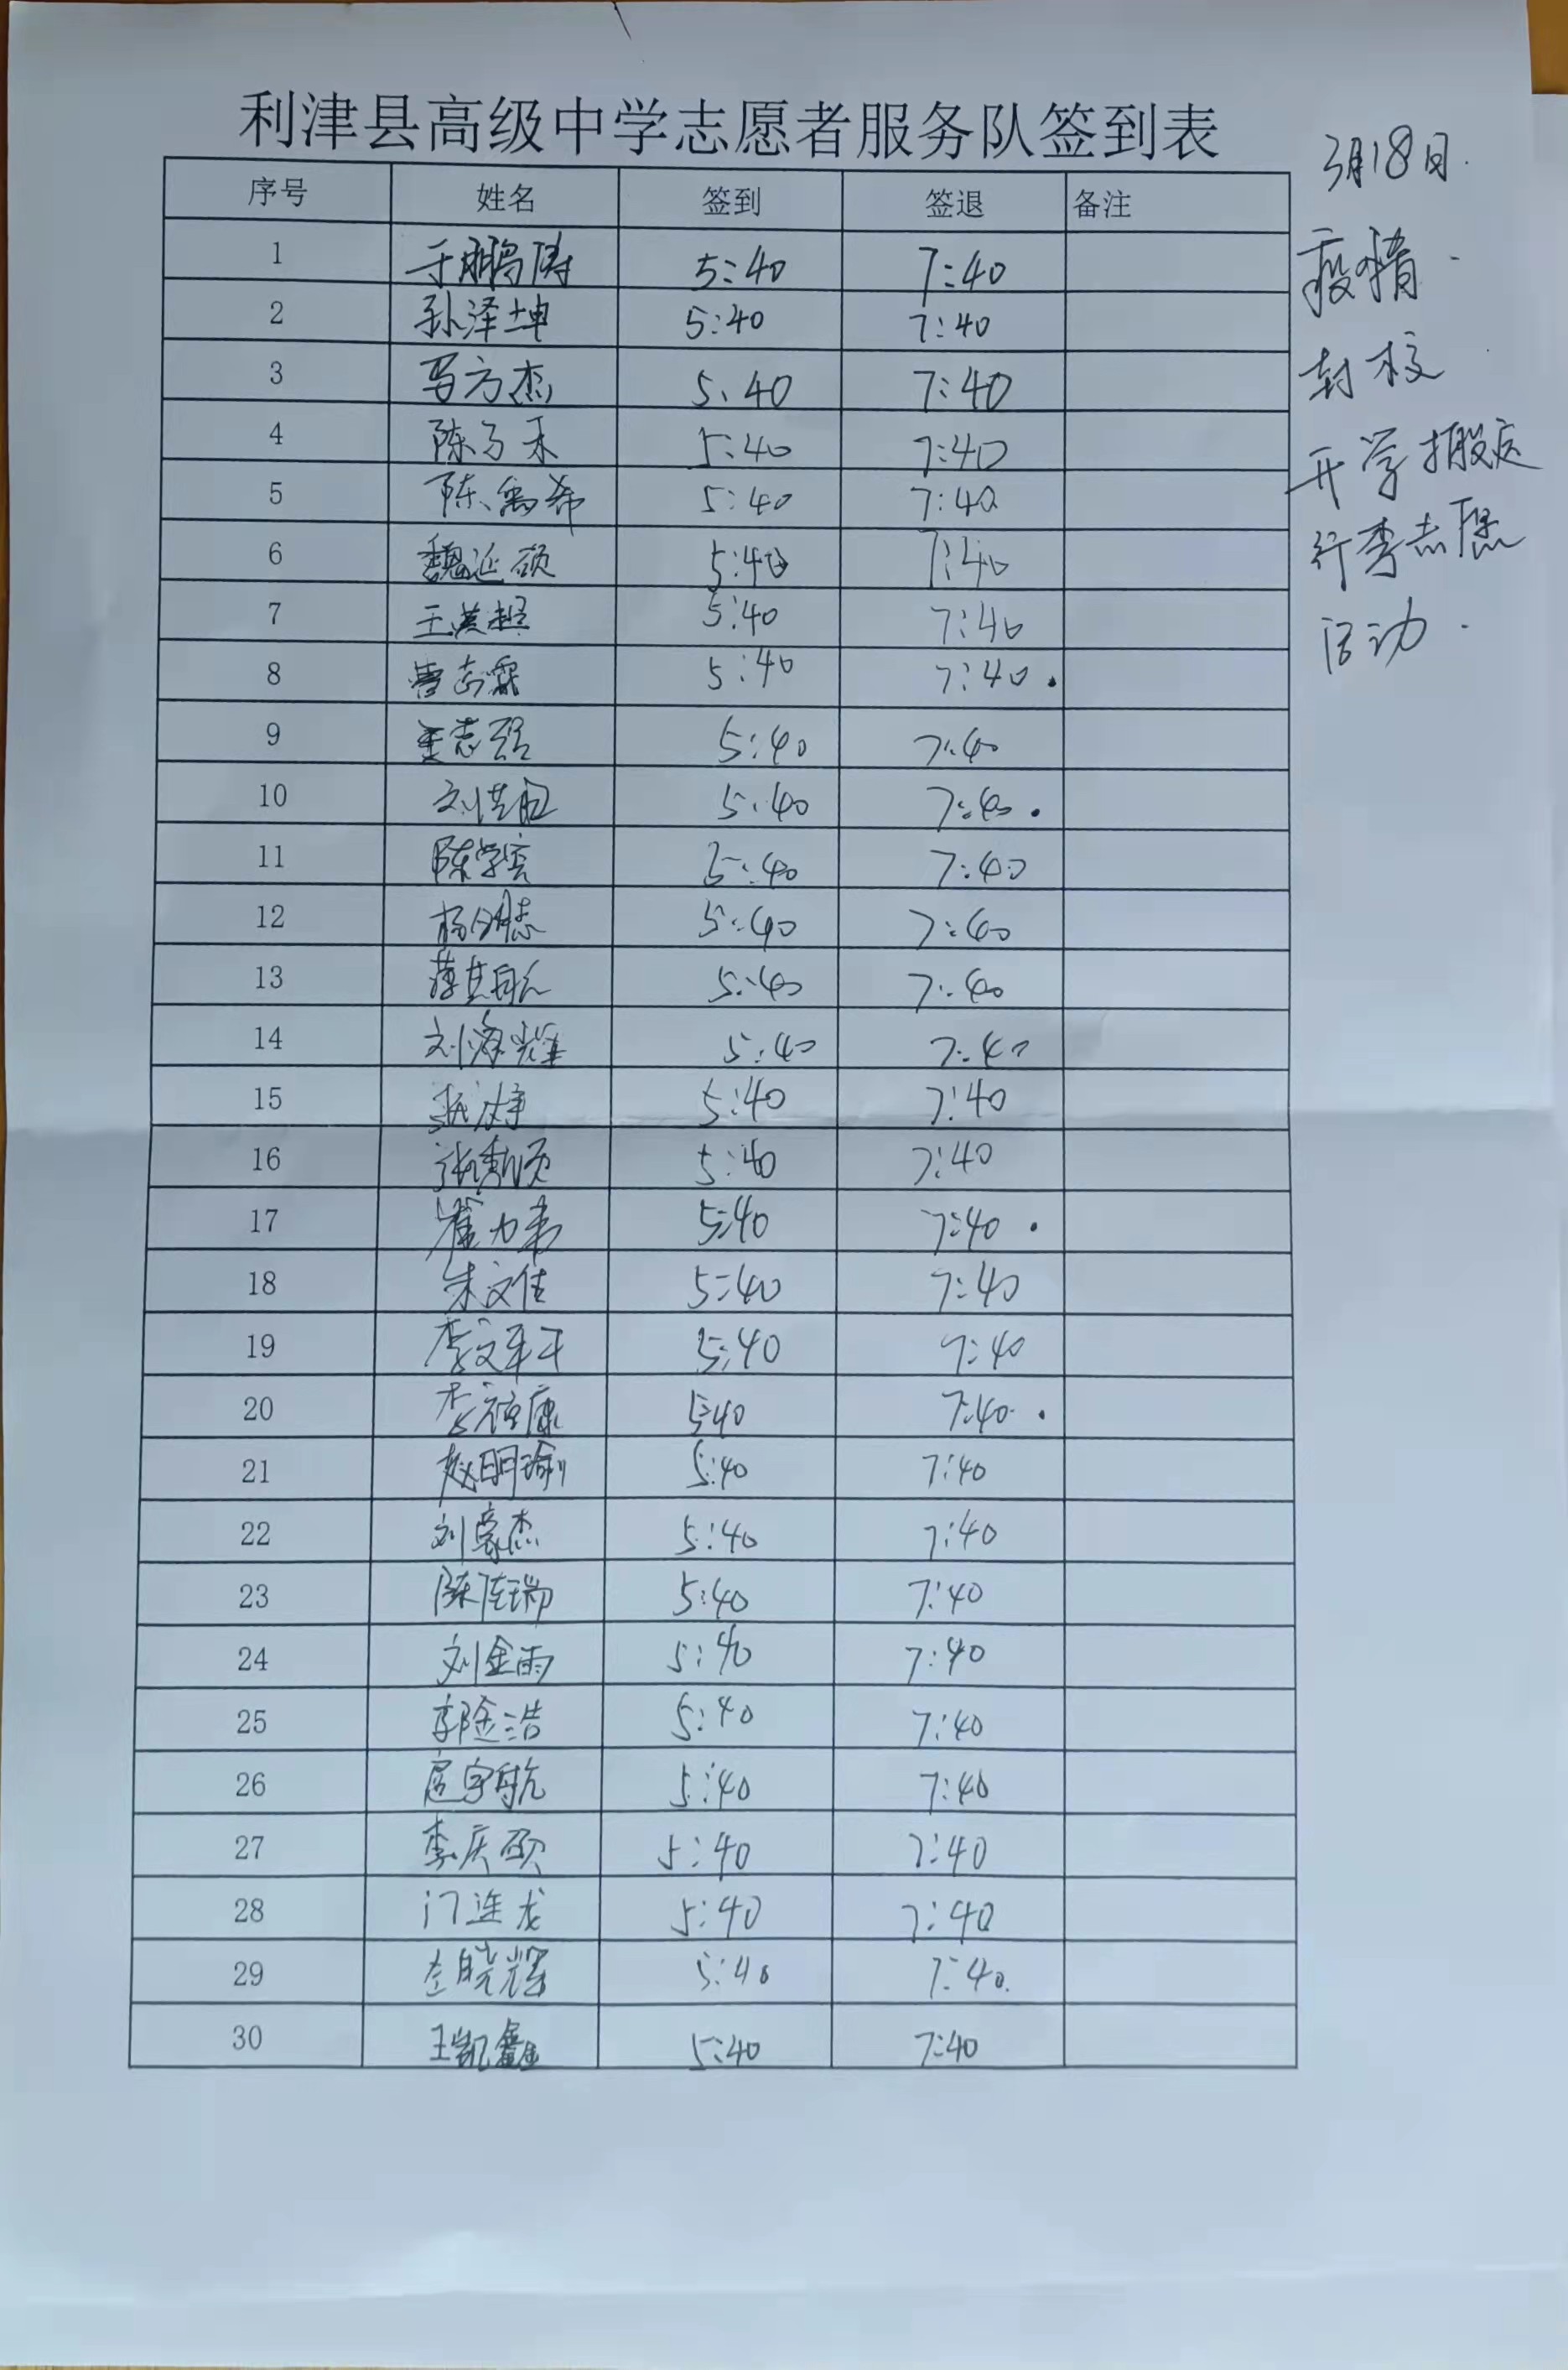 利津县高级中学志愿者服务队签到表
序号 姓名 签到 签退 备注
1 于鹏涛 5:40 7:40
2 孙泽坤 5:40 7:40
3 马方杰 5:40 7:40
4 陈子禾 5:40 7:40
5 陈禹希 5:40 7:40
6 魏延硕 5:40 7:40
7 王英超 5:40 7:40
8 曹志霖 5:40 7:40
9 志强 5:40 7:40
10 刘洪 5:40 7:40
11 陈学宾 5:40 7:40
12 杨明志 5:40 7:40
13 薄其航 5:40 7:40
14 刘海耀 5:40 7:40
15 张 5:40 7:40
16 张 5:40 7:40
17 崔力 5:40 7:40
18 朱文佳 5:40 7:40
19 李文轩 5:40 7:40
20 李 康 5:40 7:40
21 赵明瑜 5:40 7:40
22 刘豪杰 5:40 7:40
23 陈佳瑞 5:40 7:40
24 刘金雨 5:40 7:40
25 郭金浩 5:40 7:40
26 扈宇航 5:40 7:40
27 李庆硕 5:40 7:40
28 门连龙 5:40 7:40
29 晓辉 5:40 7:40
30 王凯鑫 5:40 7:40
3月18日.
疫情
封校
开学搬运
行李志愿
活动.